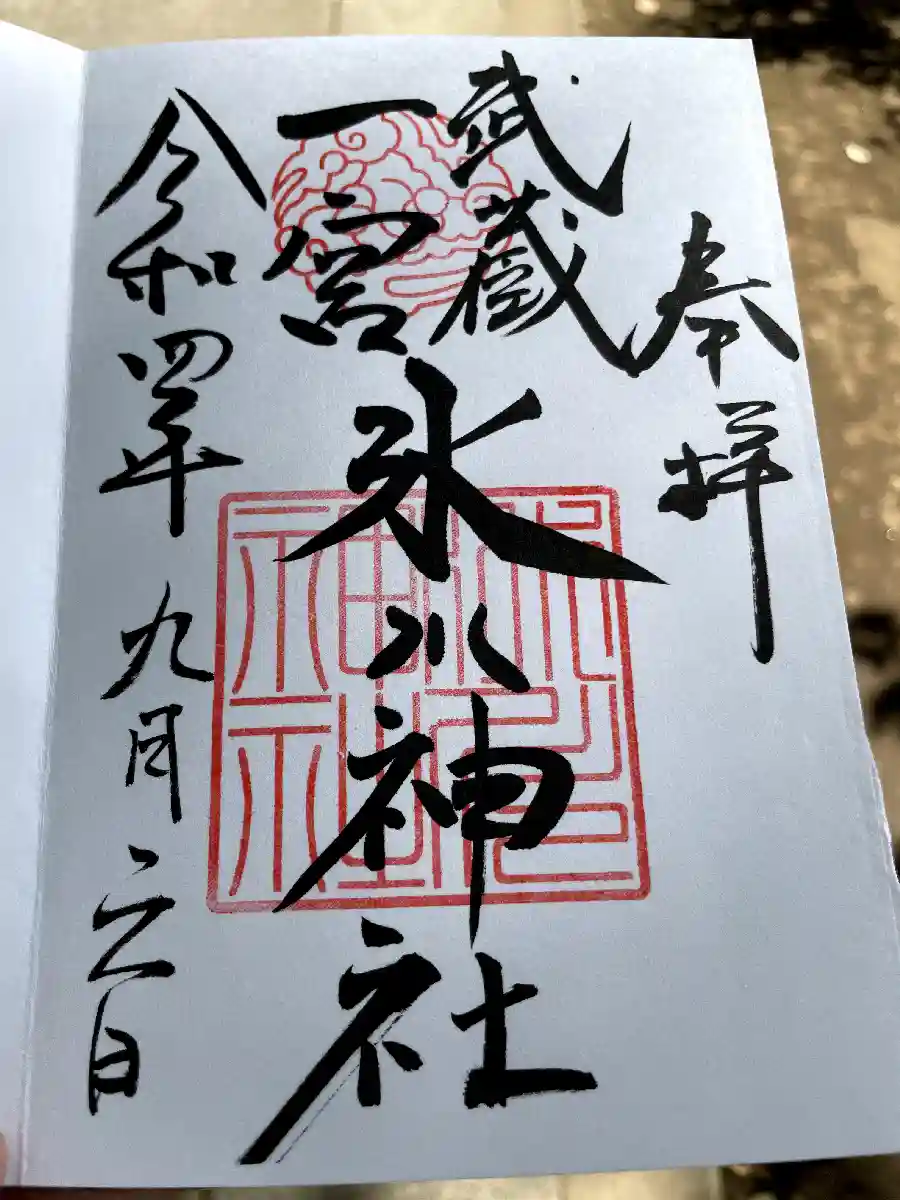 奉拝
武蔵
一宮
氷川神社
令和四年 九月六日
氷川
神社